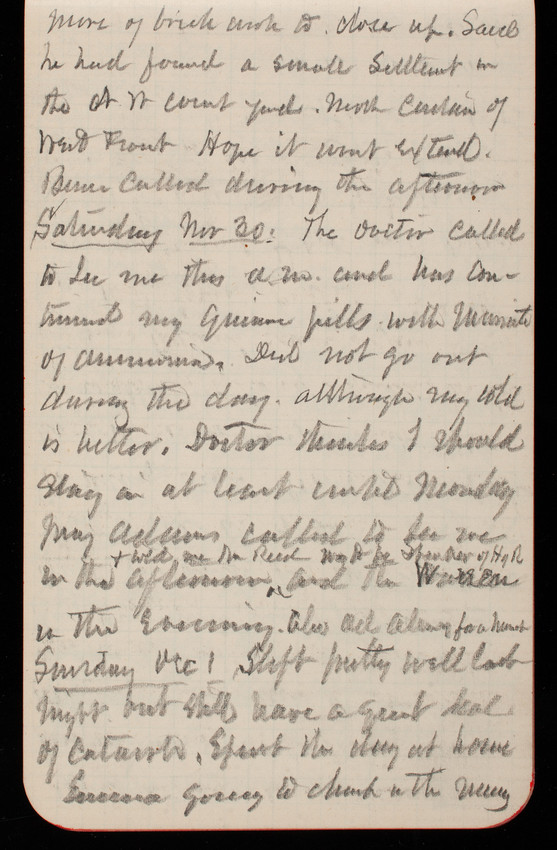 more of brick work to close up. Said
he had found a small settlement in
the N W court yard. North Center of
West Front Hope it wont extend.
called during the afternoon
Saturday Nov 30. The Doctor called
to see me this a.m. and has con-
tinued my Quinine pills with Muriate
of ammonia. Did not go out
during the day. although my cold
is better. Doctor thinks I should
stay in at least until Monday
Adams called to see me
+ told me Mr Reed was to be Speaker of H of R
in the afternoon and the Warren
in the Evening. also for a moment
Sunday Dec 1 Slept pretty well last
night but still have a great deal
of Catarrh. Spent the day at home
Emma going to church in the morng